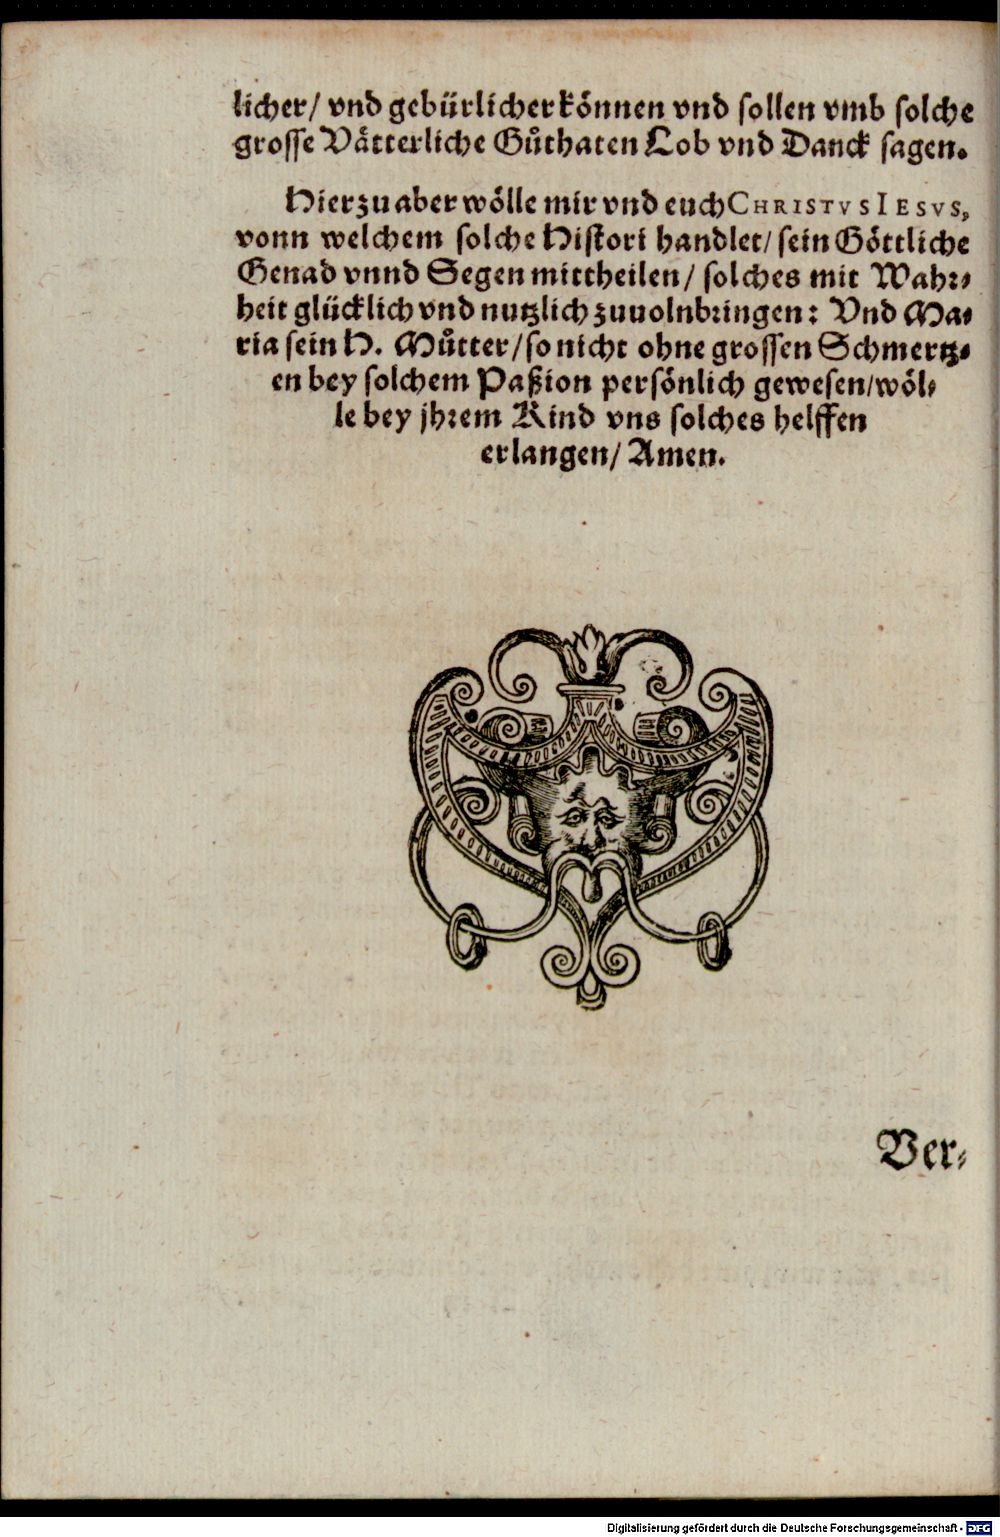 licher/ vnd gebürlicher können vnd sollen vmb solche
grosse Vätterliche Gůthaten Lob vnd Danck sagen.
Hierzu aber wölle mir vnd euch CHRISTVS IESVS,
vonn welchem solche Histori handlet/ sein Göttliche
Genad vnnd Segen mittheilen/ solches mit Wahr-
heit glücklich vnd nutzlich zuuolnbringen: Vnd Ma-
ria sein H. Můtter/ so nicht ohne grossen Schmertz-
en bey solchem Paßion persönlich gewesen/ wöl-
le bey jhrem Kind vns solches helffen
erlangen/ Amen.
Ver-
Digitalisierung gefördert durch die Deutsche Forschungsgemeinschaft - DFG